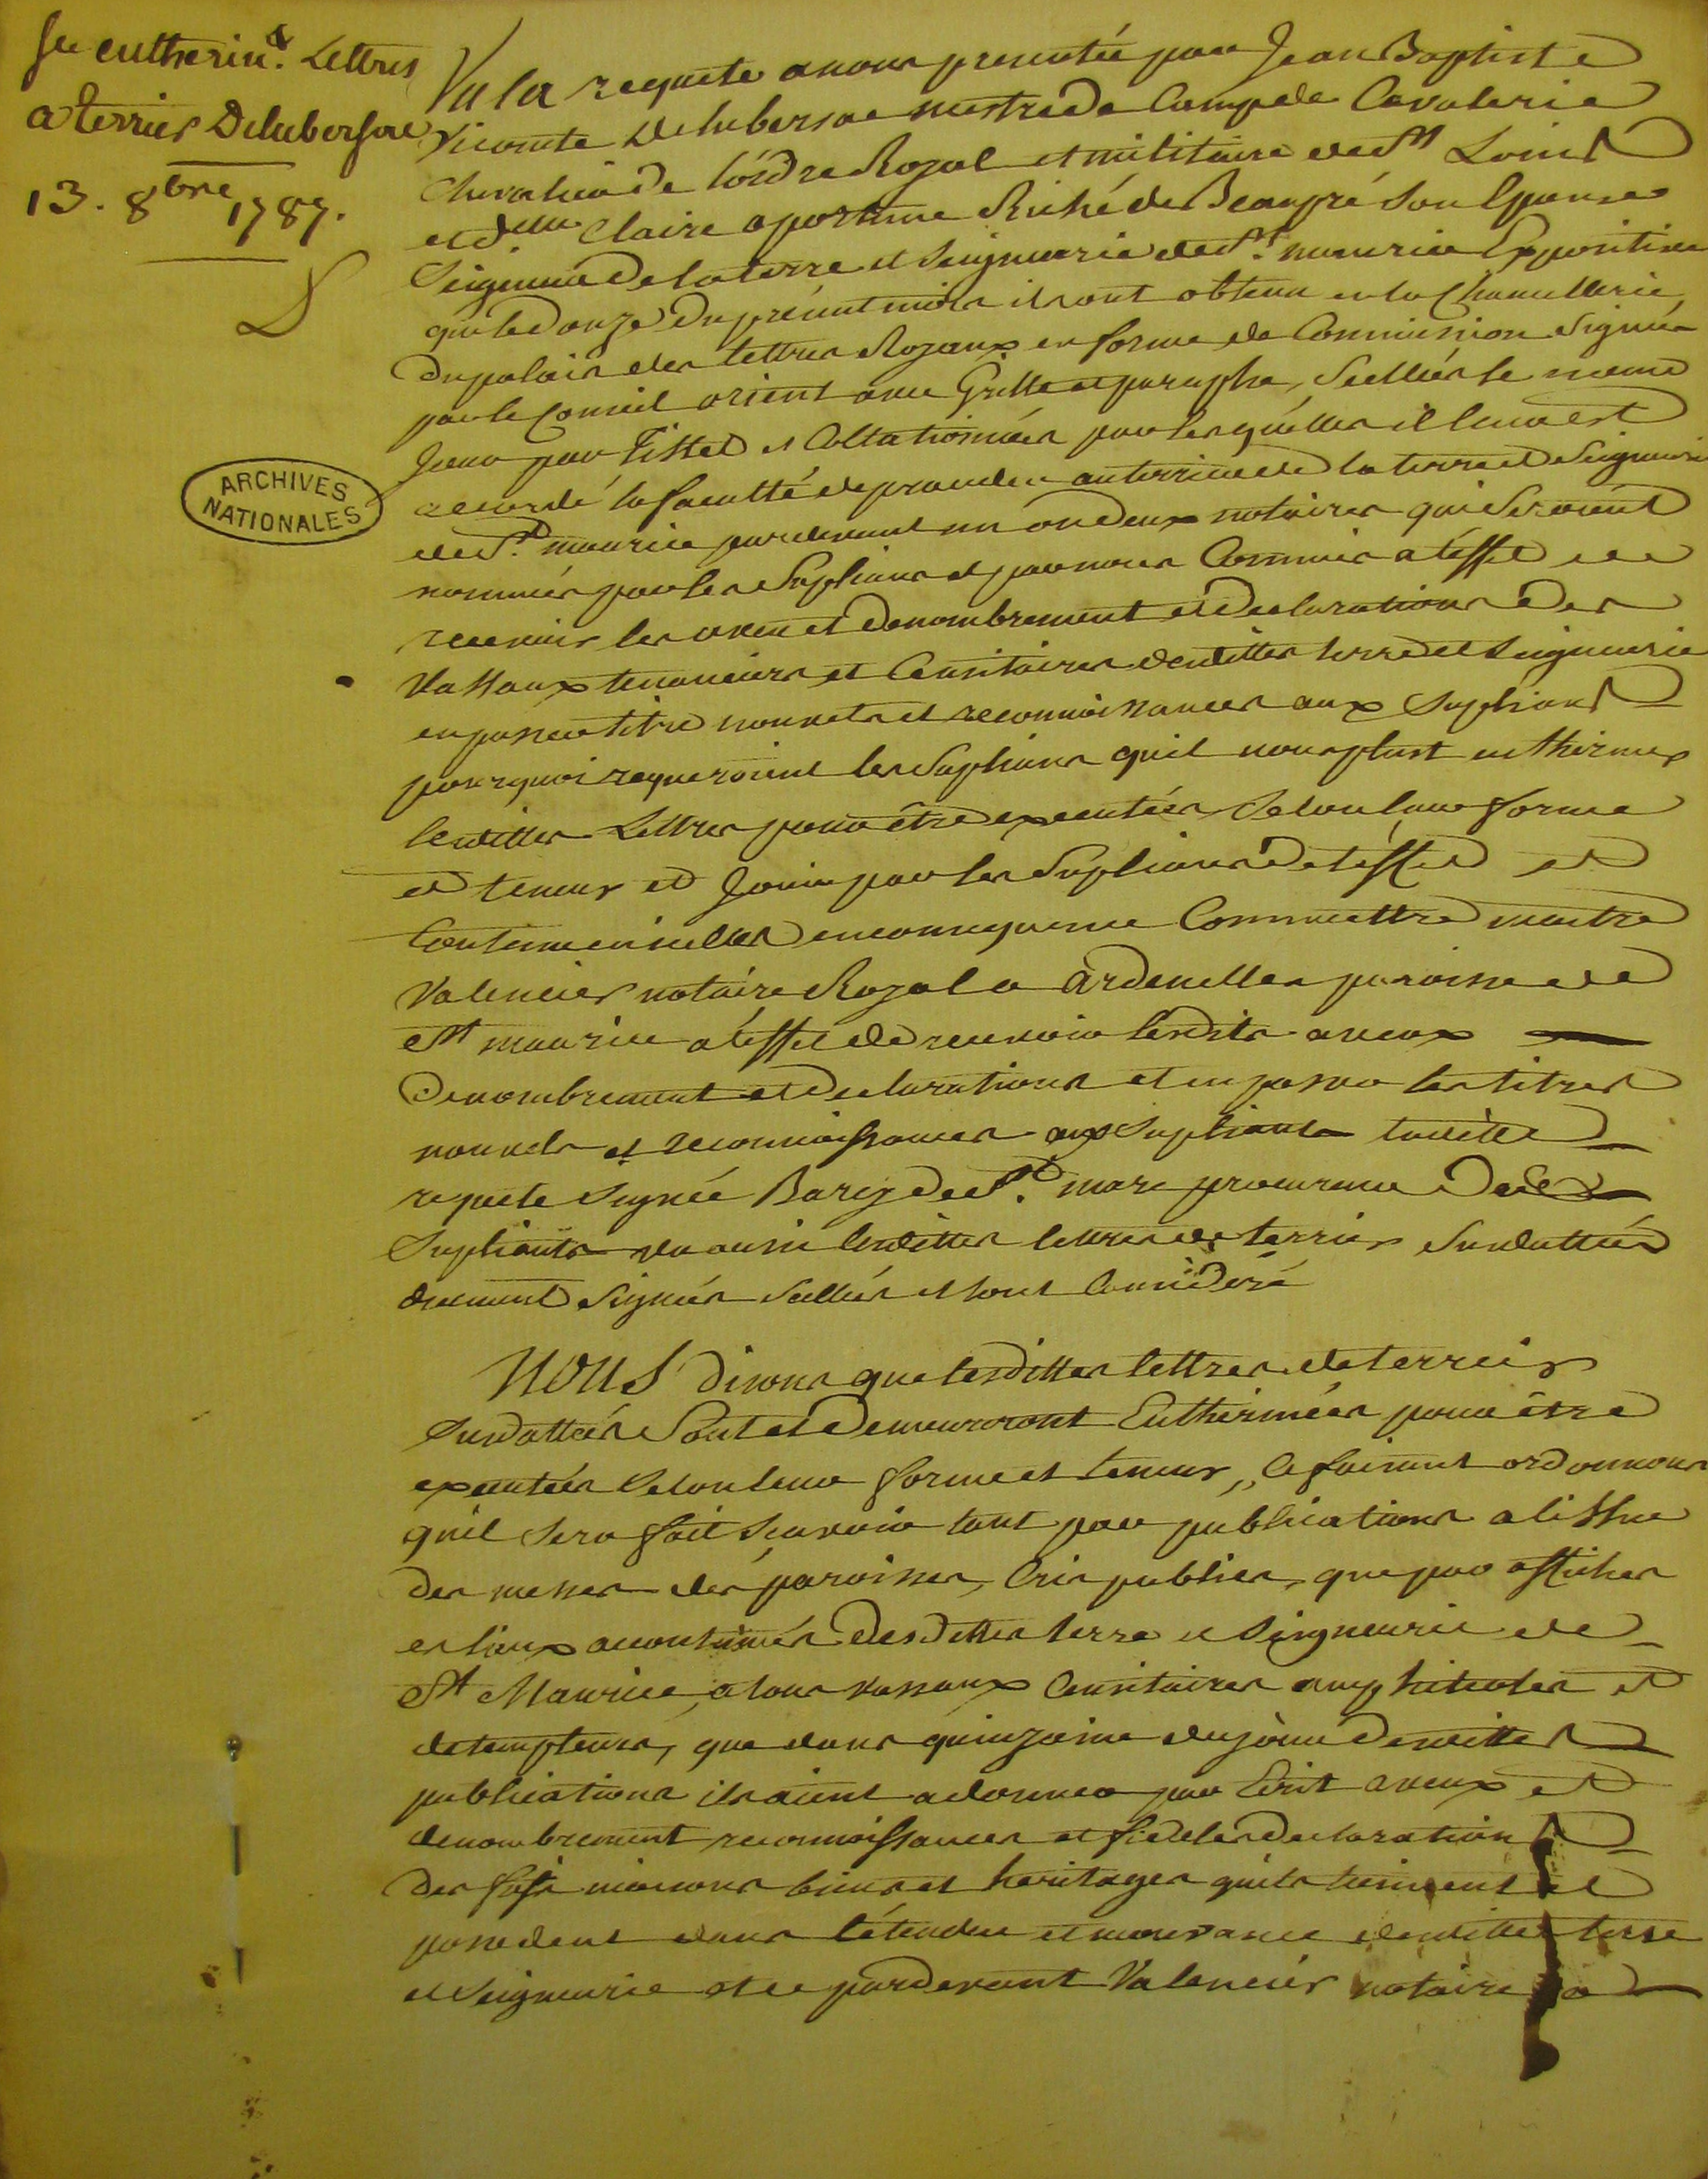 Sce entherin.t Lettres
a terrier Delubersac
13. 8bre 1787.
ARCHIVES
NATIONALES
Vu la requete a nous presentée par Jean Baptiste
Vicomte Delubersac mestre de Camp de Cavalerie
Chevalier de l'ordre Royal et militaire de St Louis
et d.elle Claire apolline Riché de Beaupré Son Epouse
Seigneur de la terre et Seigneurie de St. maurice Expositive
que le onze du présent mois ils ont obtenu en la Chancellerie
du palais des lettres Royaux en forme de Commission Signées
par le Conseil orient avec Grille et paraphe, Scellées le meme
Jour par Tistet et Collationnées par lesquelles il leur est
accordé la faculté de proceder au terrier de la terre et Seigneurie
de St. maurice pardevant un ou deux notaires qui Seroient
nommés par les Suplians et par nous Commis a léffet de
recevoir les aveu et denombrement et declarations des
Vassaux tenanciers et Censitaires desdittes terre et Seigneurie
en passer titre nouvels et reconnoissances aux Supliants
pourquoi requeroient les Suplians quil nous plust entheriner
lesdittes Lettres pour être executées Selon leur forme
et teneur et Jouir par les Suplians de léffet et
Contenu en icelles en consequence Commettre maitre
Valencier notaire Royal a ardenelles paroisse de
St maurice a léffet de recevoir lesdits aveux
denombrement et declarations et en passer les titres
nouvels et reconnoissances aux Supliants laditte
requete Signée Barey de St. marc procureur des
Supliants vu aussi lesdittes lettres de terrier Susdattées
duement Signées Scellées et tout Consideré
NOUS disons que lesdittes lettres de terrier
Susdattées Sont et Demeureront Entherinées pour être
executées Selon leur forme et teneur, Ce faisant ordonnons
quil Sera fait Scavoir tant par publications a lissue
des messes des paroisses, Cris publics, que par affiches
es lieux acoutumés desdittes terre et Seigneurie de
St Maurice, a tous vassaux Censitaires emphiteotes et
detempteurs, que dans quinzaine du jour desdittes
publications ils aient a donner par Ecrit aveux et
denombrement reconnoissances et fideles declarations
des fiefs maisons biens et heritages quils tiennent et
possedent dans l'étendue et mouvance desdittes terre
et Seigneurie et ce pardevant Valencier notaire a